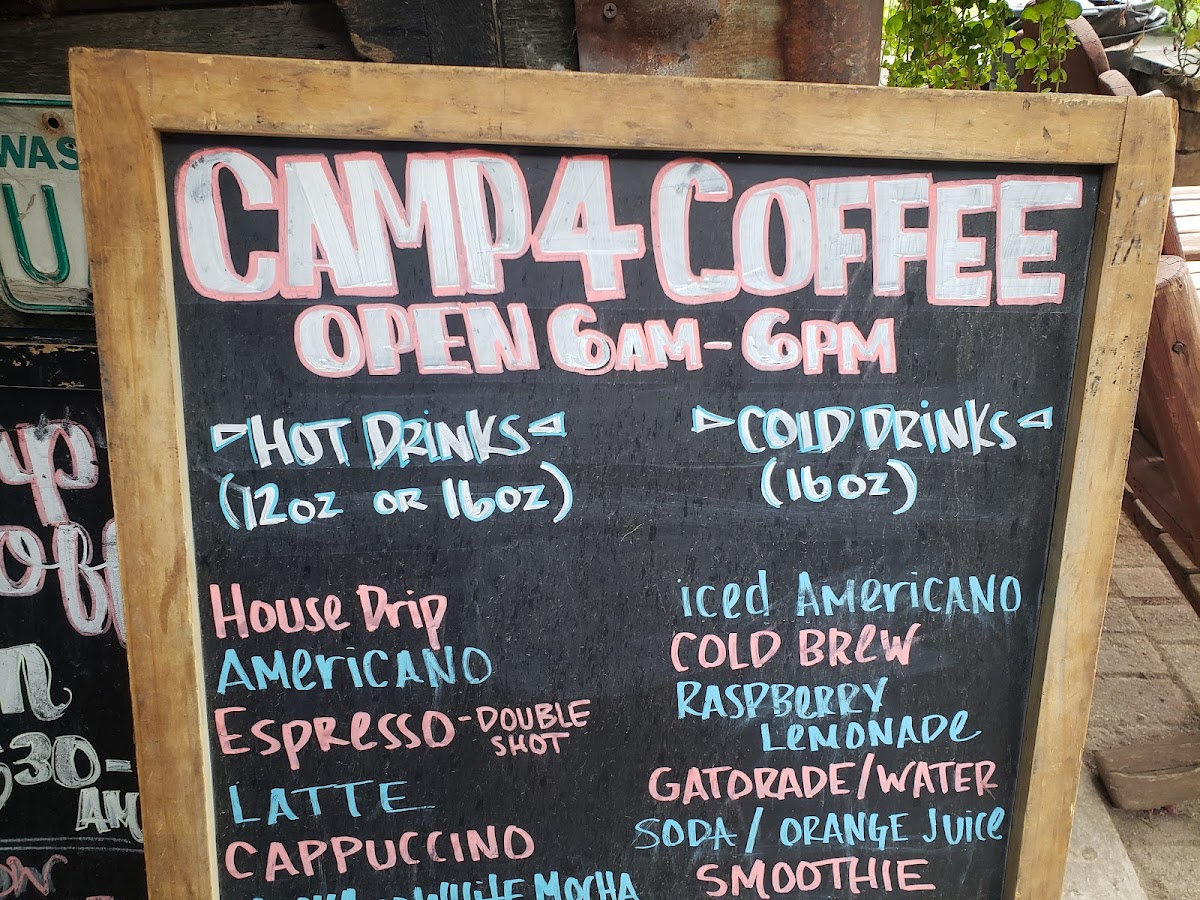 CAMP 4 COFFEE
OPEN 6AM - 6PM
HOT DRINKS
(12oz OR 16oz)
House Drip
AMERICANO
Espresso - DOUBLE SHOT
LATTE
CAPPUCCINO
WHITE MOCHA
COLD DRINKS
(16oz)
iced AMERICANO
COLD BREW
RASPBERRY
LEMONADE
GATORADE/WATER
SODA / ORANGE JUICE
SMOOTHIE
WAS
U
30-
AM